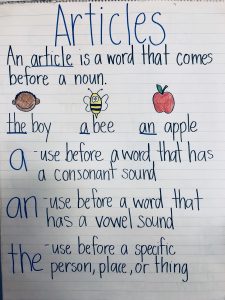 Articles
An article is a word that comes
before a noun.
the boy a bee an apple
a -use before a word that has
a consonant sound
an -use before a word that
has a vowel sound
the -use before a specific
person, place, or thing